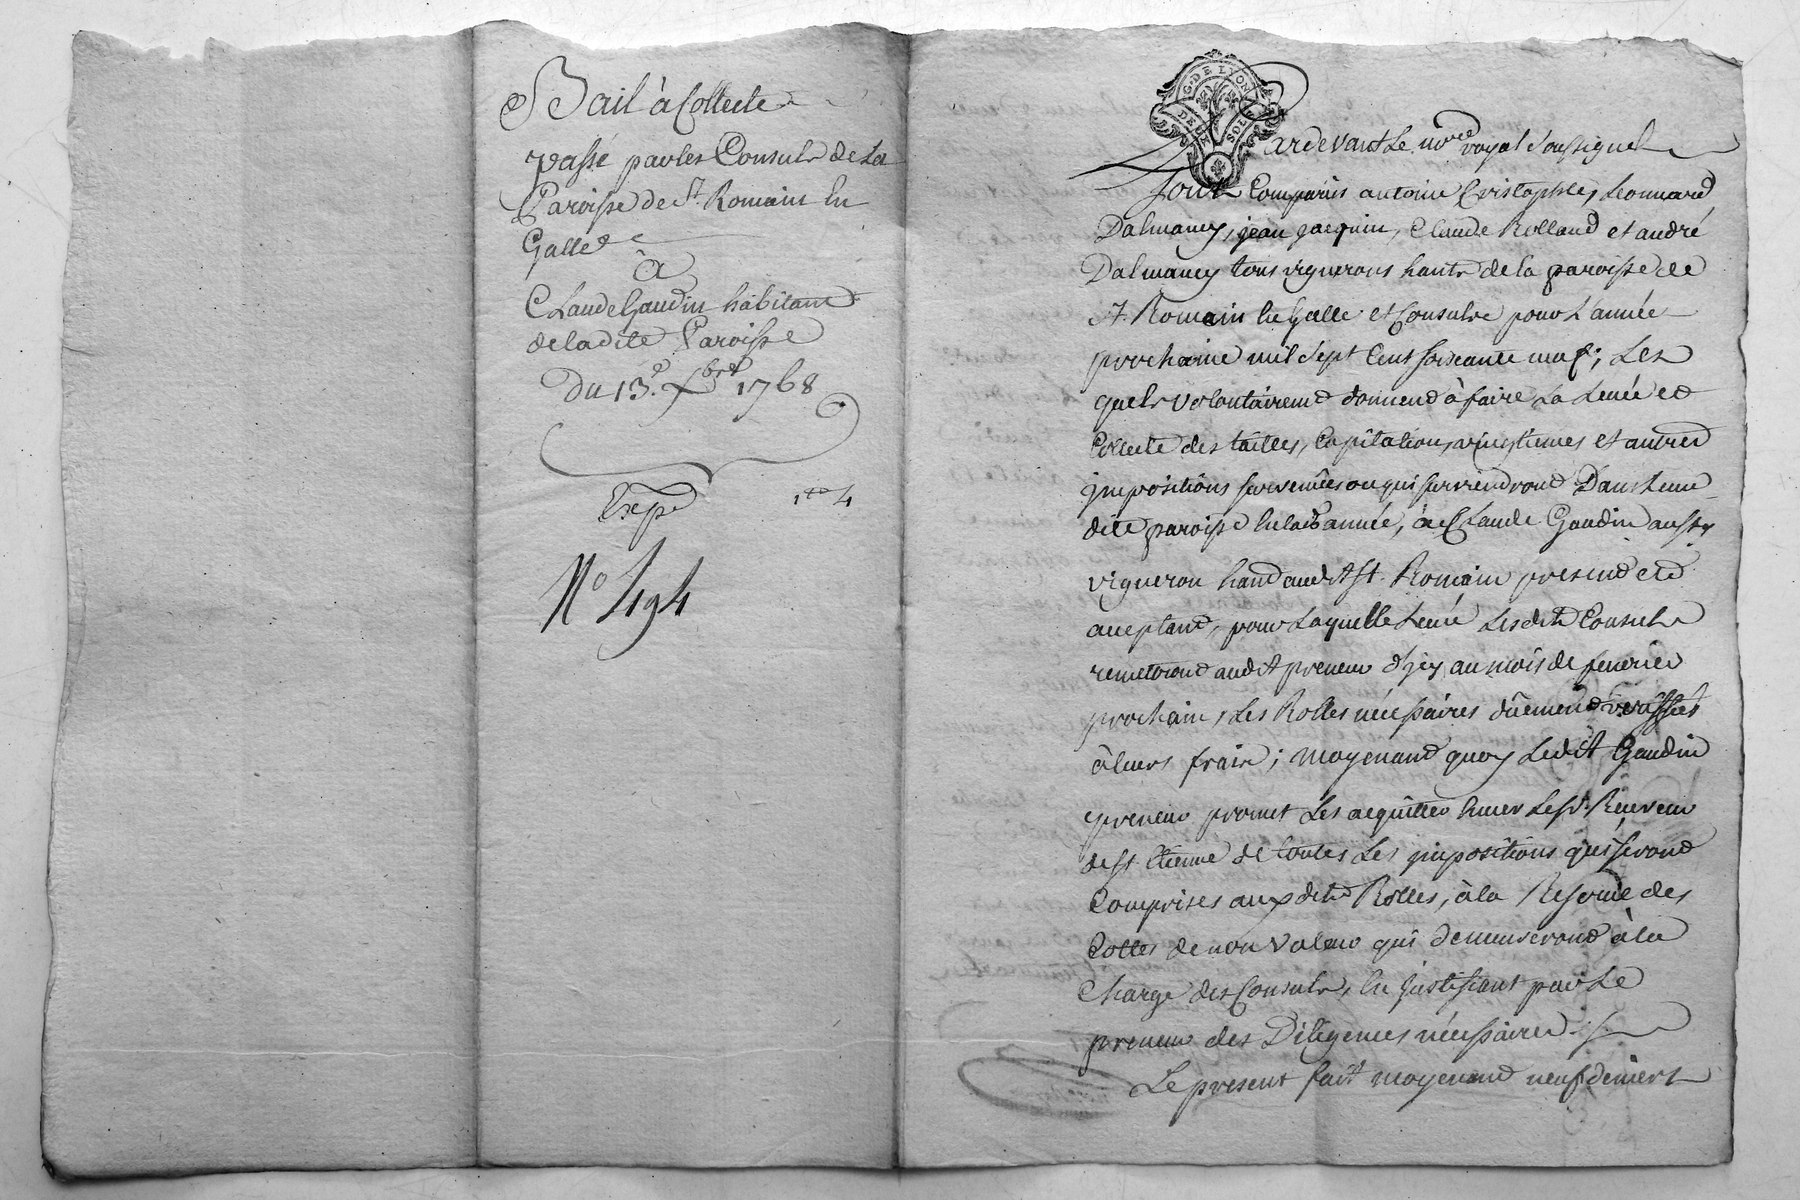 Bail à Collecte
passé par les Consuls de La
Paroisse de St Romain en
Galle
à
Claude Gaudin habitant
de la dite Paroisse
Du 13e. Xbre 1768
Expé
No 494
G. DE LYON
DEUX SOLS
Pardevant Le nore royal soussigné
sont Comparus antoine Cristophle, Leonnard
Dalmancy, jean jacquin, Claude Rolland et andré
Dalmancy tous vignerons hants de la paroisse de
St Romain en Galle et Consuls pour L'année
prochaine mil sept Cent soixante neuf; Les
quels volontairemt donnent à faire La Levée et
Collecte des tailles, Capitation, vingtiemes et autres
jmpositions survenües ou qui surviendront Dans Leur
dite paroisse en lad année, à Claude Gaudin aussy
vigneron hant audit St. Romain present et
acceptant, pour Laquelle Levée Lesdits Consuls
remettront audit preneur d'jcy au mois de fevrier
prochain, Les Rolles nécessaires dûement vériffiés
à leurs frais; moyenant quoy Ledit Gaudin
preneur promet Les acquitter Envers Le Sr. Receveur
de St Etienne de toutes Les jmpositions qui seront
Comprises auxdits Rolles, à la Reserve des
Cottes de non valeur qui demeureront à la
Charge des Consuls, En justifiant par Le
preneur des Diligences nécessaires
Le present fait moyenant neuf deniers